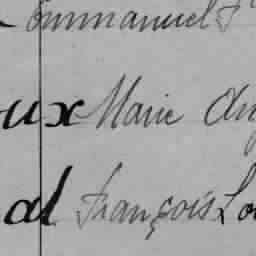 Emmanuel F
ux Marie Au
al François Lo